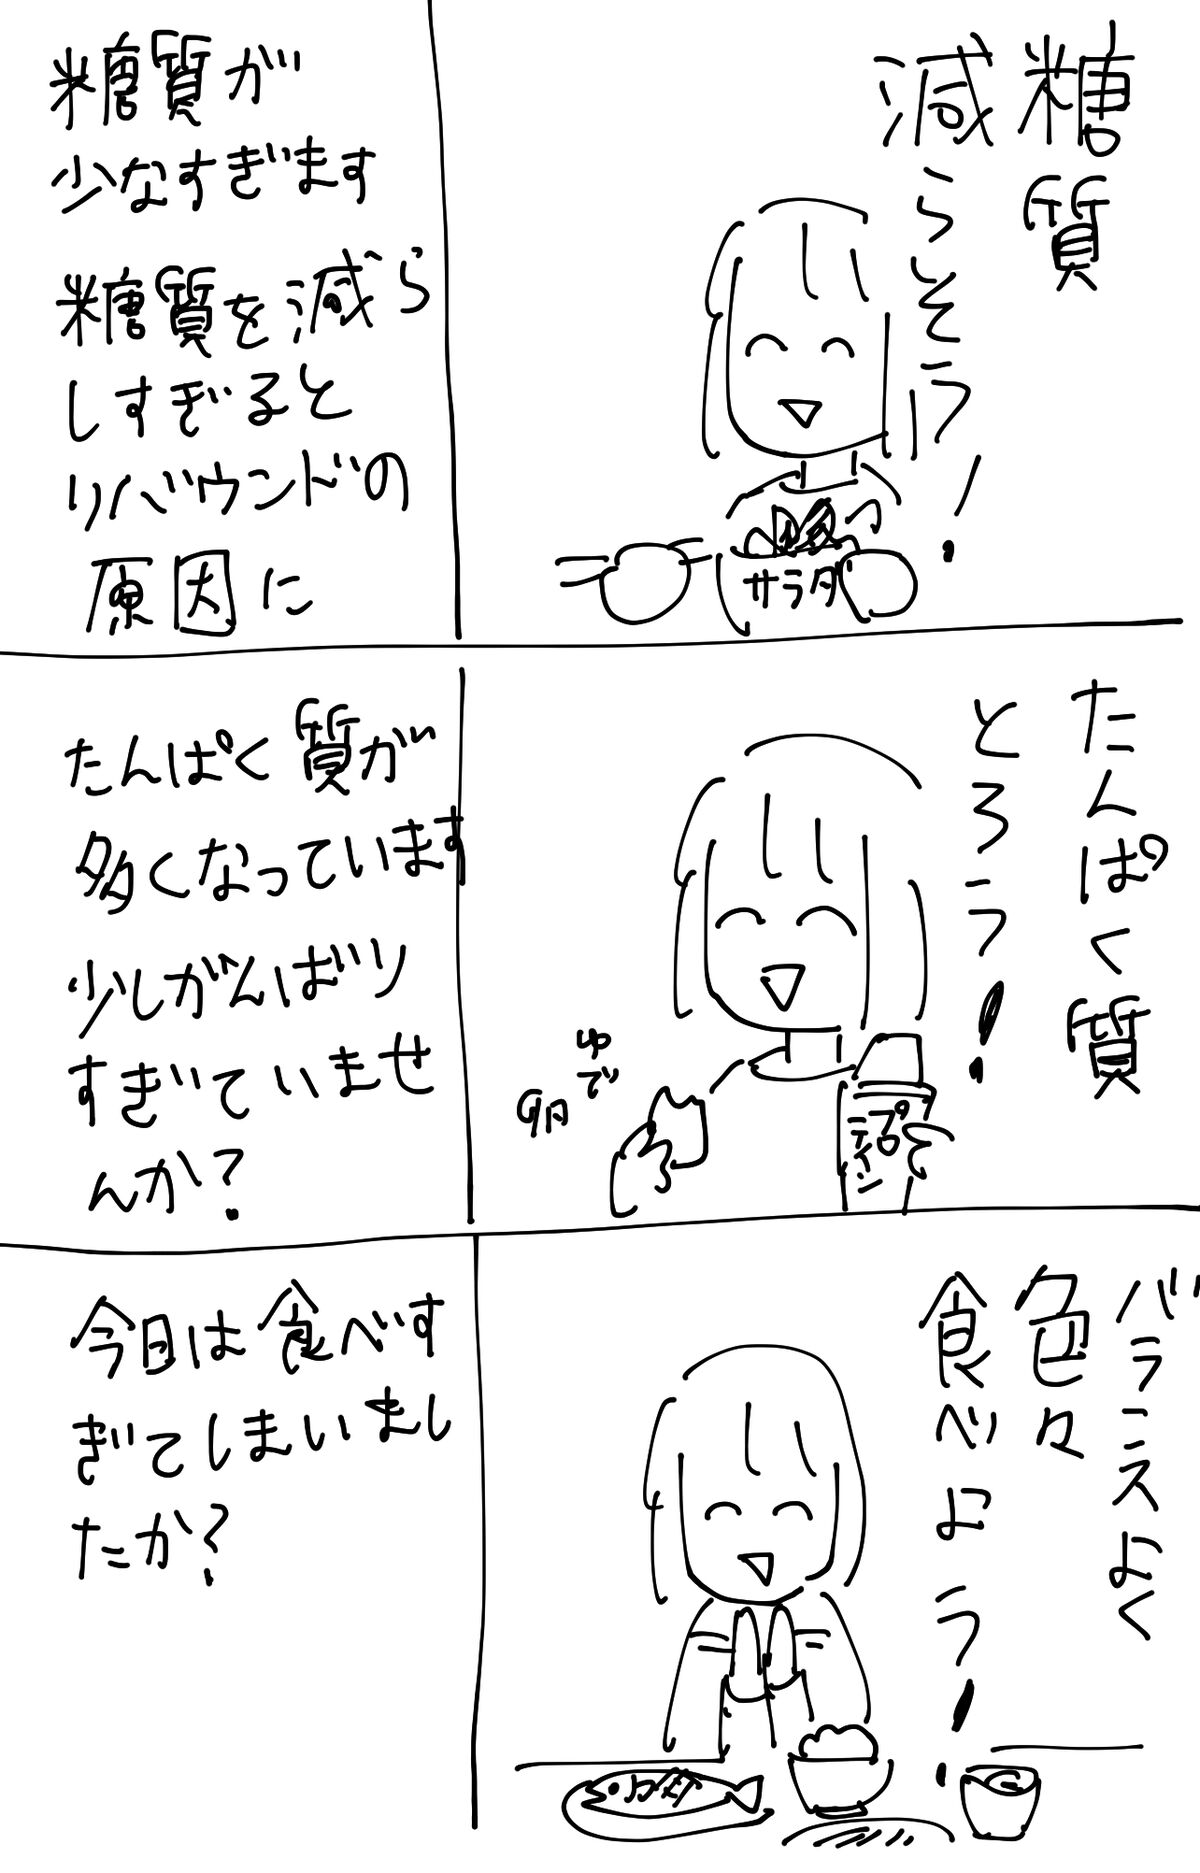 糖質
減らそう!
サラダ
糖質が
少なすぎます
糖質を減ら
しすぎると
リバウンドの
原因に
たんぱく質
とろう!
ゆで
卵
プロテイン
たんぱく質が
多くなっています
少しがんばり
すぎていませ
んか?
バランスよく
色々
食べよう!
今日は食べす
ぎてしまいまし
たか?